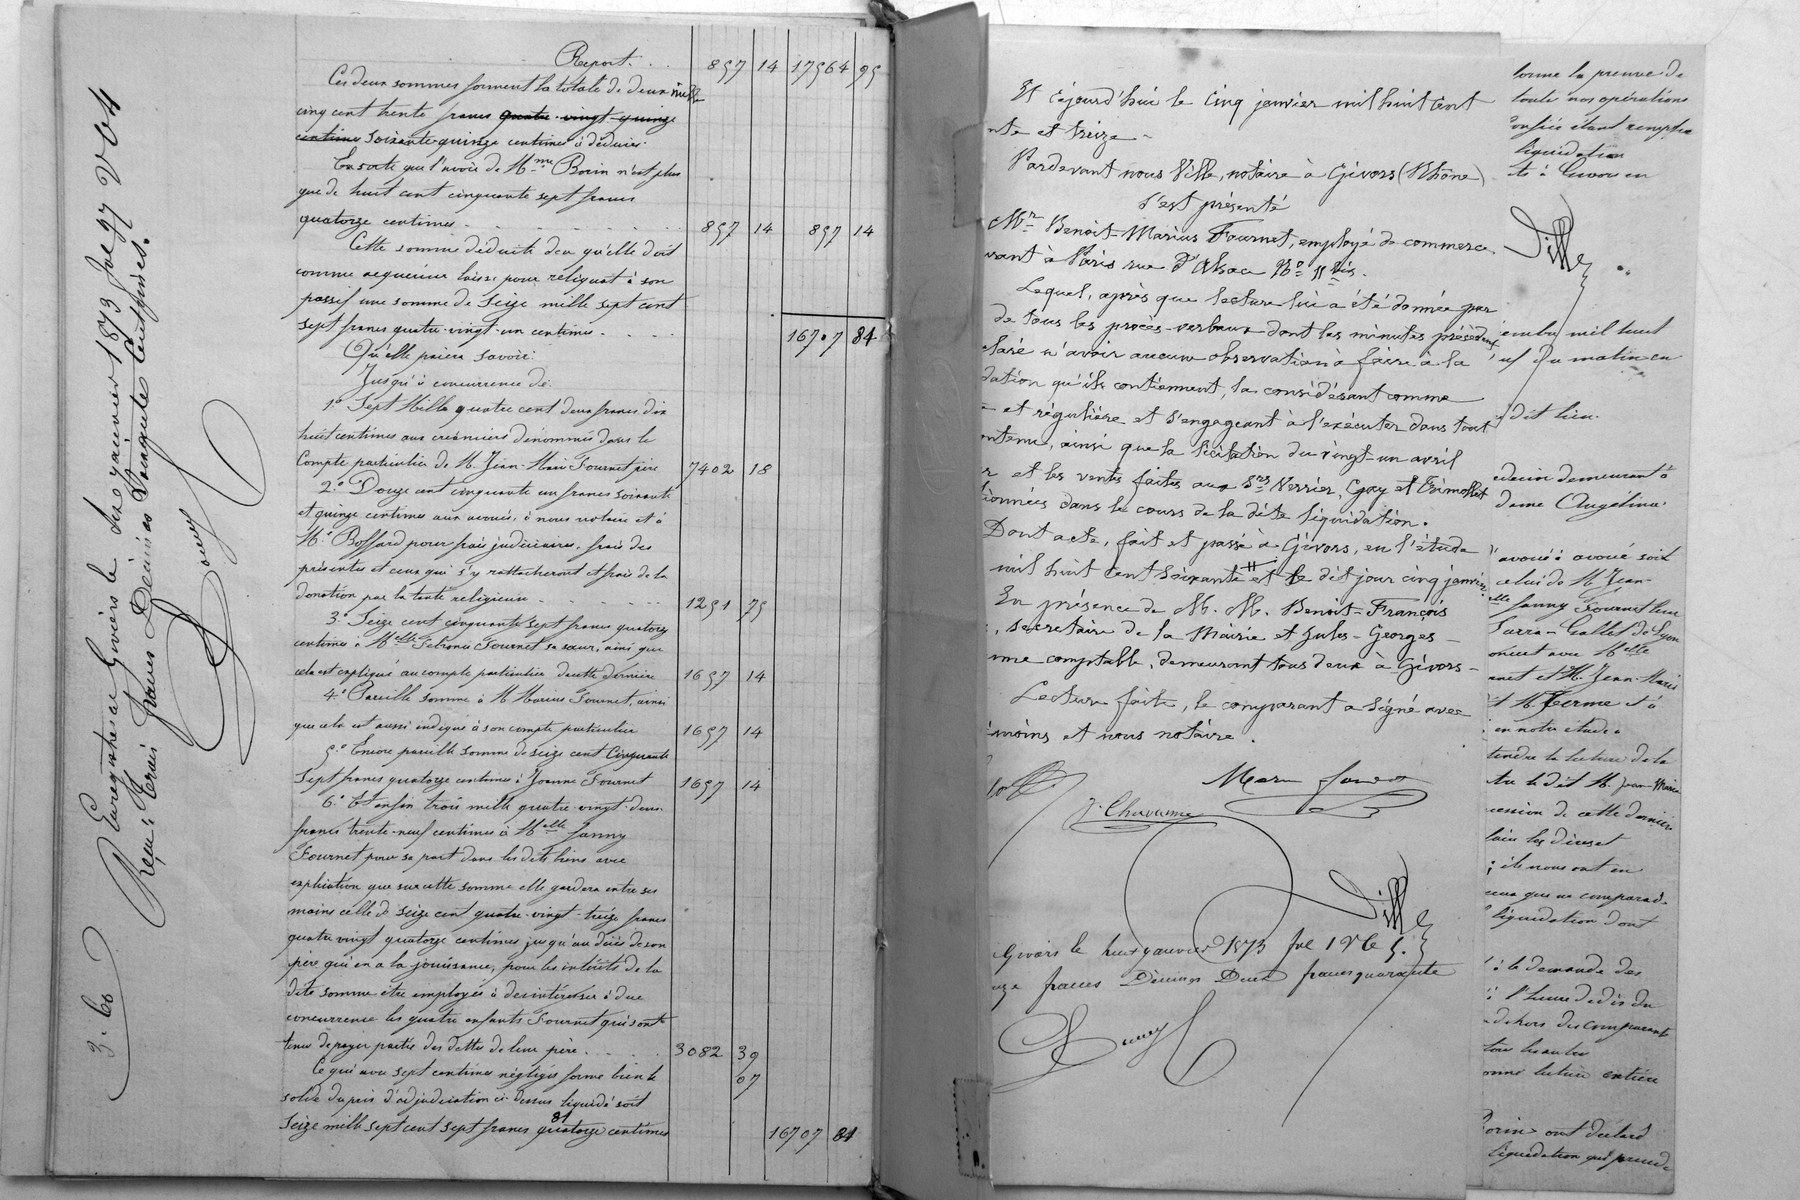 Report. . . 857 14 17564 95
Ces deux sommes forment la totale de deux mille
cinq cent trente francs quatre-vingt-quinze
centimes soixante quinze centimes à déduire.
En sorte que l'avoir de Mme Borin n'est plus
que de huit cent cinquante sept francs
quatorze centimes. . . . . 857 14 857 14
Cette somme déduite de ce qu'elle doit
comme acquéreur laisse pour reliquat à son
passif une somme de Seize mille sept cent
sept francs quatre-vingt-un centimes. . . . 16707 81
Qu'elle paiera savoir:
Jusqu'à concurrence de:
1° Sept Mille quatre cent deux francs dix
huit centimes aux créanciers dénommés dans le
Compte particulier de M. Jean-Marie Fournet père 7402 18
2° Douze cent cinquante un francs soixante
et quinze centimes aux avoués, à nous notaire et à
Me Boffard pour frais judiciaires, frais des
présentes et ceux qui s'y rattacheront et frais de la
donation par la tante religieuse . . . . 1251 75
3° Seize cent cinquante sept francs quatorze
centimes à Melle Fournet sa sœur, ainsi que
cela est expliqué au compte particulier de cette dernière 1657 14
4° Pareille somme à M Marius Fournet, ainsi
que cela est aussi indiqué à son compte particulier 1657 14
5° Encore pareille somme de seize cent Cinquante
Sept francs quatorze centimes à Joanne Fournet 1657 14
6° Et enfin trois mille quatre-vingt-deux
francs trente-neuf centimes à Melle Fanny
Fournet pour sa part dans les dits biens avec
explication que sur cette somme elle gardera entre ses
mains celle de Seize cent quatre-vingt-treize francs
quatre vingt quatorze centimes jusqu'au décès de son
père qui en a la jouissance, pour les intérêts de la
dite somme être employés à désintéresser à due
concurrence les quatre enfants Fournet qui sont
tenus de payer partie des dettes de leur père. . . . 3082 39
Ce qui avec sept centimes négligés forme bien le 07
solde du prix d'adjudication ci-dessus liquidé soit
Seize mille sept cent sept francs quatorze centimes 81 16707 81
Enregistré à Givors le dix janvier 1873 fol 97 V C 4
Reçu: Trois francs Décimes Soixante Centimes.
3.60
Et cejourd'hui le Cinq janvier mil huit cent
nte et treize ~
Pardevant nous Ville, notaire à Givors (Rhône)
S'est présenté
Mr Benoit-Marius Fournet, employé de commerce
rant à Paris rue d'Alsace No 11 bis.
Lequel, après que lecture lui a été donnée par
de tous les procès-verbaux dont les minutes précèdent,
claré n'avoir aucune observation à faire à la
dation qu'ils contiennent, la considérant comme
et régulière et s'engageant à l'exécuter dans tout
ontenu, ainsi que la licitation du vingt-un avril
r et les ventes faites aux Srs Verrier, Gay et Trimollet
tionnées dans le cours de la dite liquidation.
Dont acte, fait et passé à Givors, en l'étude
mil huit cent Soixante et le dit jour cinq janvier.
En présence de M. M. Benoit-François
, secrétaire de la Mairie et Jules-Georges
me comptable, demeurant tous deux à Givors-
Lecture faite, le comparant a signé avec
émoins et nous notaire.
J. Chavanne
Ville
Givors le huit janvier 1873 fol 1 V C 5.
nze francs Décimes Deux francs quarante
forme la preuve de
toute nos opérations
onfiée étant remplie
liquidation
Ville
embre mil huit
uf du matin en
dit lieu.
edecin demeurant à
dame Angélina
avoué à avoué soit
celui de M. Jean-
elle Fanny Fournet
de Lyon
Melle
et M. Jean-Marie
en notre étude
tendre la lecture de la
le dit M. Jean-Marie
cession de cette dernière
; ils nous ont en
liquidation dont
à la demande des
dehors des comparants
tous les autres
onné lecture entière
Borin ont déclaré
liquidation qui précède